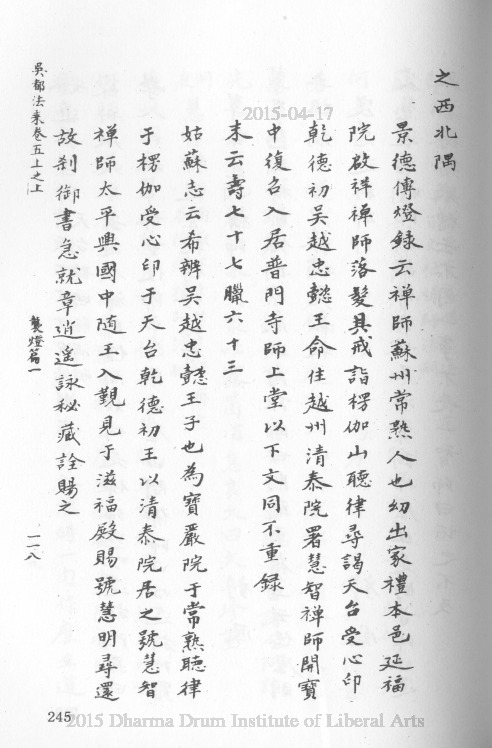 之西北隅
景德傳燈錄云禪師蘇州常熟人也幼出家禮本邑延福
院啟祥禪師落髮具戒詣楞伽山聽律尋謁天台受心印
乾德初吳越忠懿王命住越州清泰院署慧智禪師開寶
中復召入居普門寺師上堂以下文同不重録
末云壽七十七臘六十三
姑蘇志云希辨吳越忠懿王子也為寶嚴院于常熟聽律
于楞伽受心印于天台乾德初王以清泰院居之號慧智
禪師太平興國中随王入覲見于滋福殿賜號慧明尋還
故剎御書急就章逍遥詠秘藏詮賜之
吳都法乗卷五上之上
襲燈篇一
一一八
245
2015-04-17
2015 Dharma Drum Institute of Liberal Arts